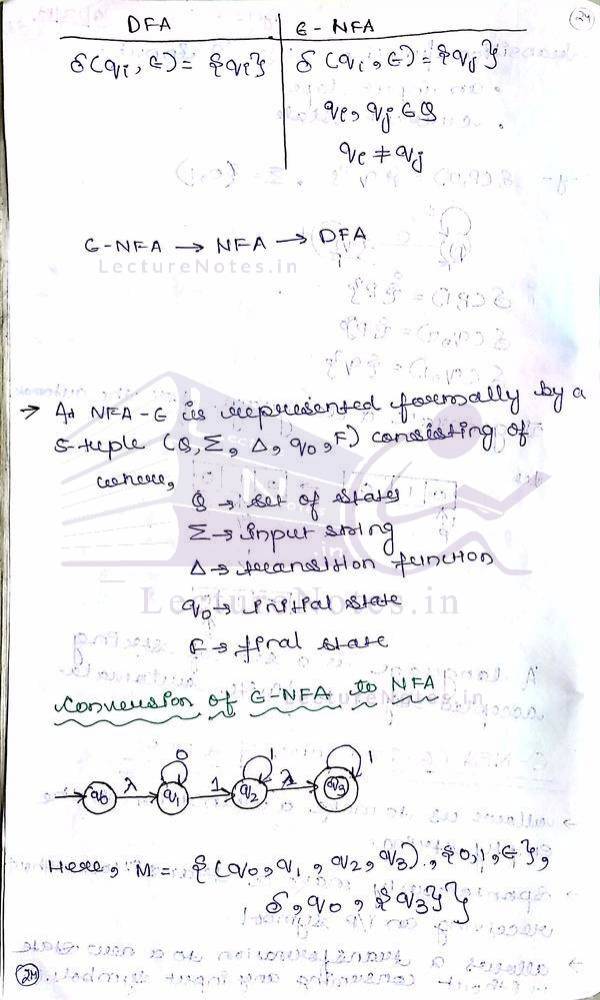 24
DFA | ε - NFA
δ(qi, ε) = {qi} | δ(qi, ε) = {qj}
qi, qj ∈ Q
qi ≠ qj
ε-NFA → NFA → DFA
LectureNotes.in
→ An NFA-ε is represented formally by a
5-tuple (Q, Σ, Δ, q0, F) consisting of
where,
Q → set of states
Σ → Input string
Δ → transition function
LectureNotes.in
q0 → initial state
F → final state
Conversion of ε-NFA to NFA
0 1 1
q0 λ q1 1 q2 λ q3
Here, M = {(q0, q1, q2, q3), {0, 1, ε},
δ, q0, {q3}}
24